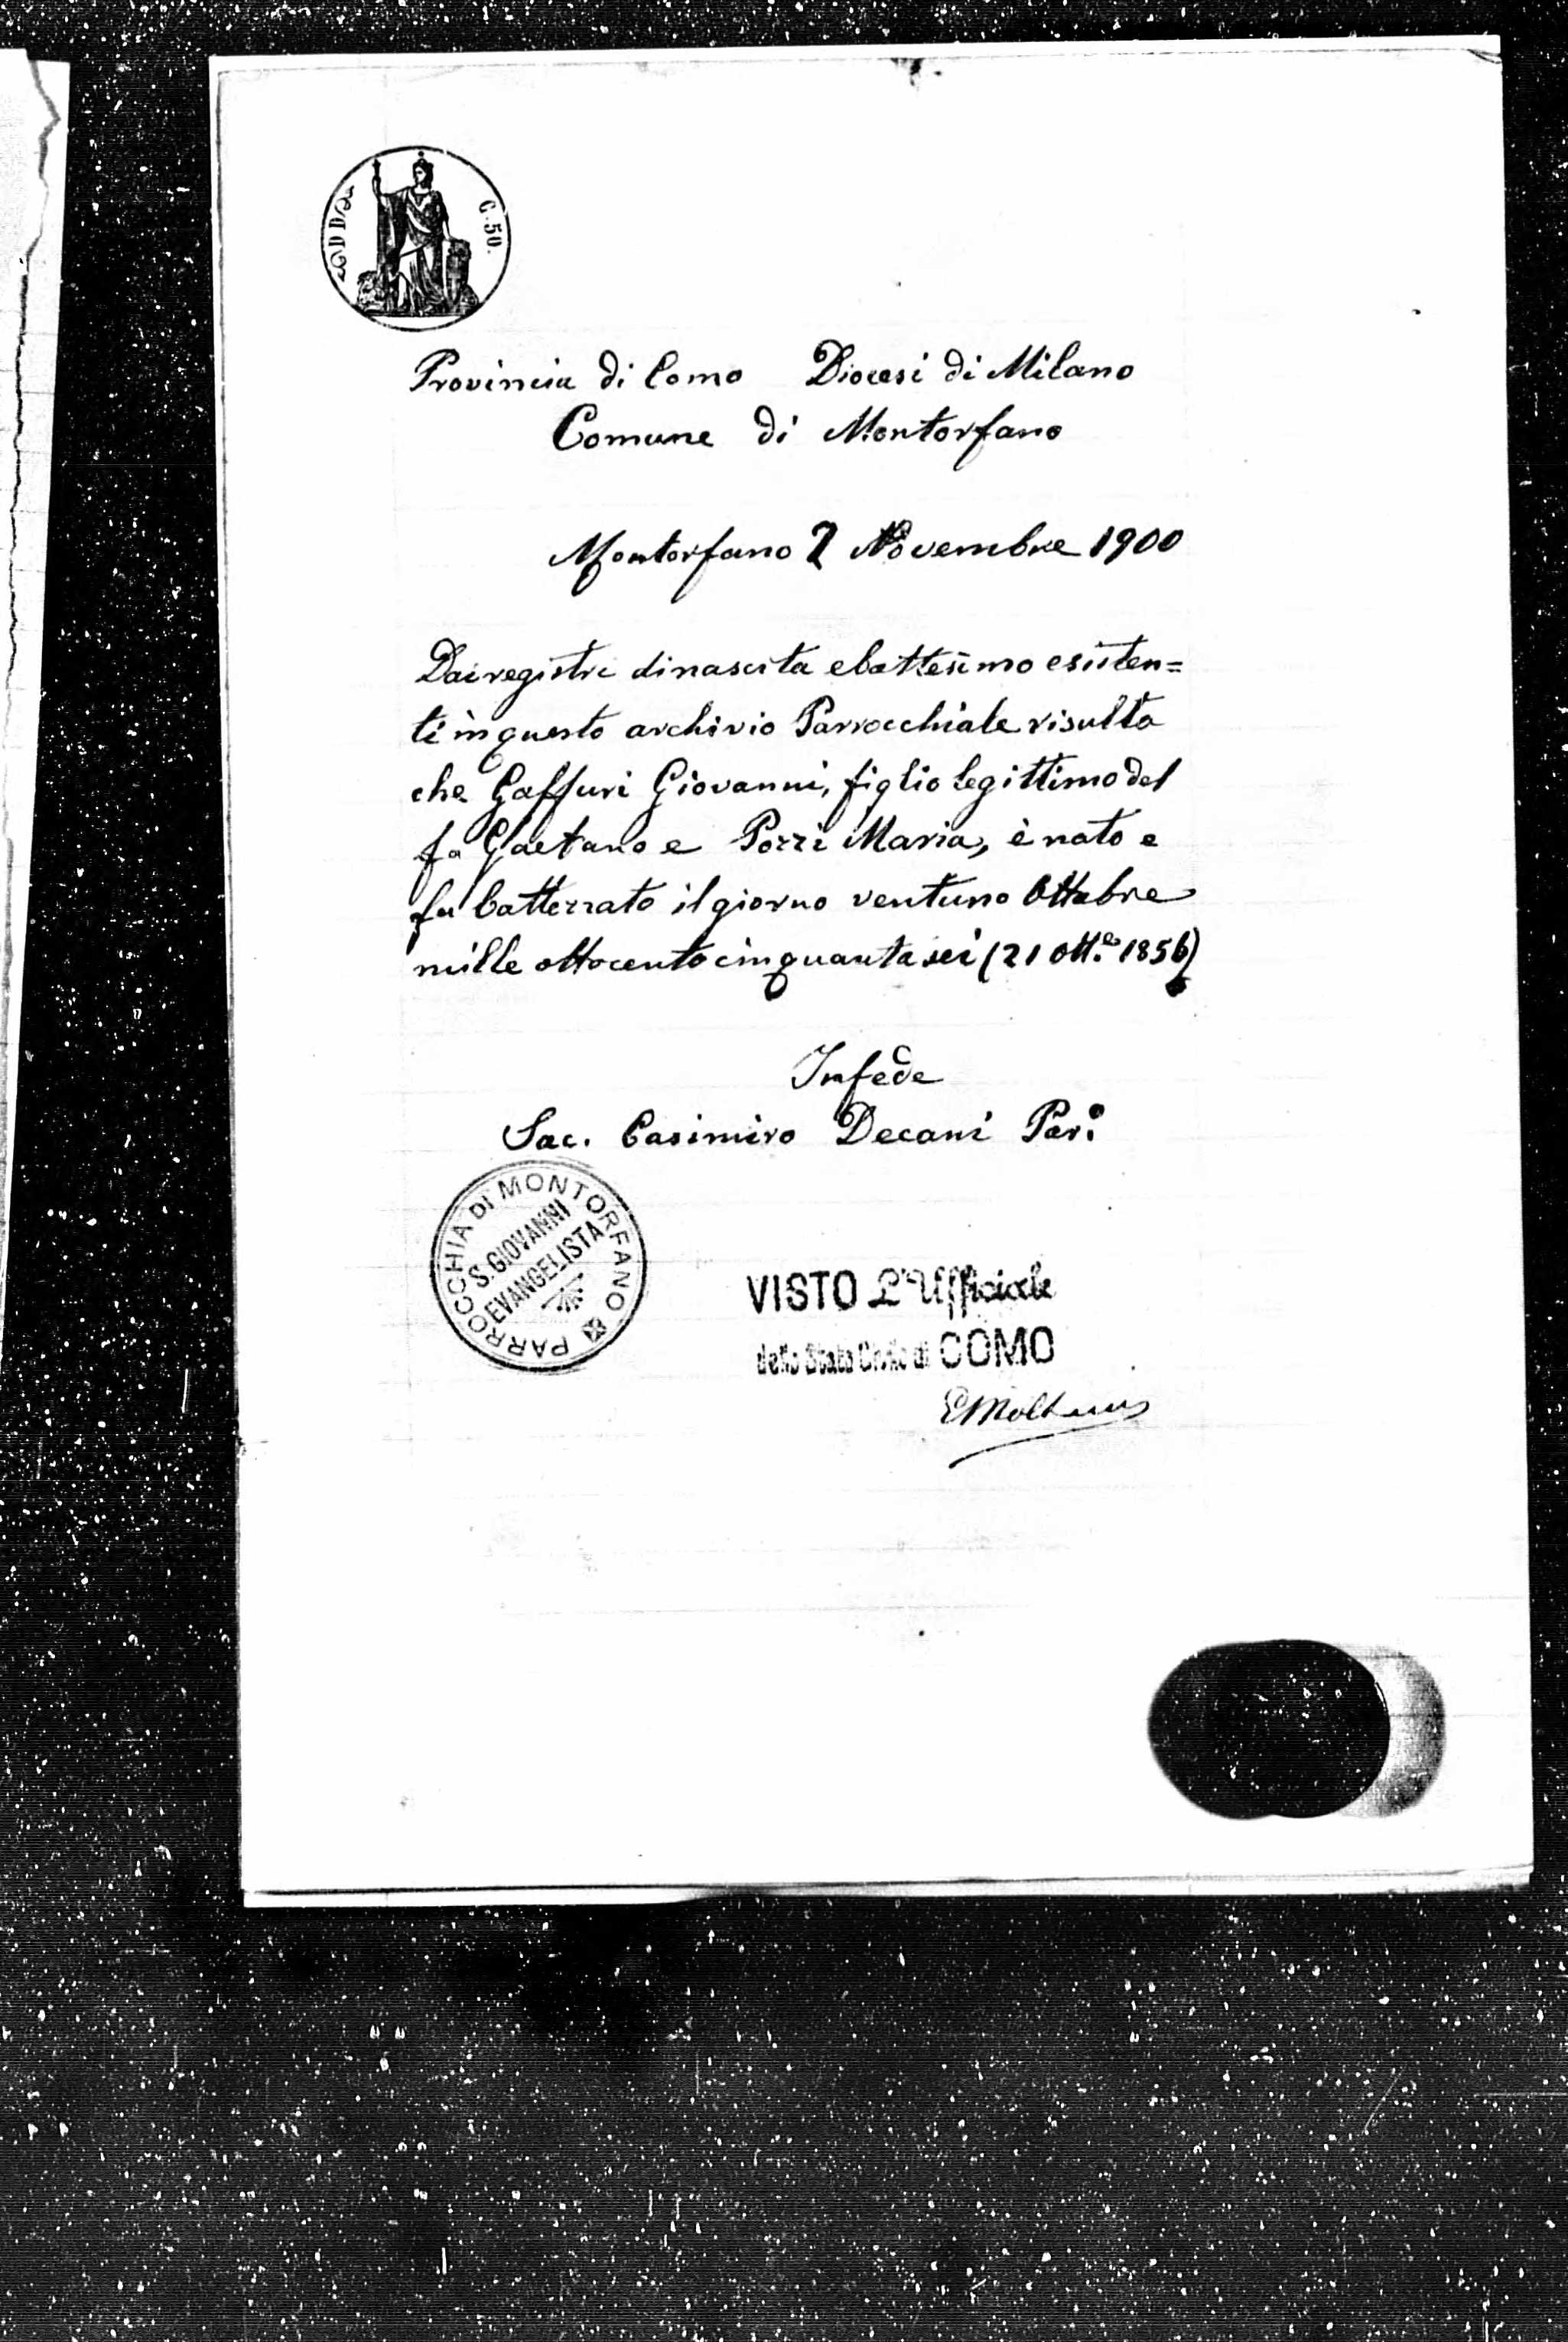 C. 50.
Provincia di Como Diocesi di Milano
Comune di Montorfano
Montorfano 7 Novembre 1900
Dai registri di nascita e battesimo esisten=
ti in questo archivio Parrocchiale risulta
che Gaffuri Giovanni, figlio legittimo del
fu Gaetano e Pozzi Maria, è nato e
fu battezzato il giorno ventuno Ottobre
mille ottocento cinquanta sei (21 Ott.e 1856)
In fede
Sac. Casimiro Decani Par.
PARROCCHIA DI MONTORFANO
S. GIOVANNI
EVANGELISTA
VISTO L'Ufficiale
dello Stato Civile di COMO